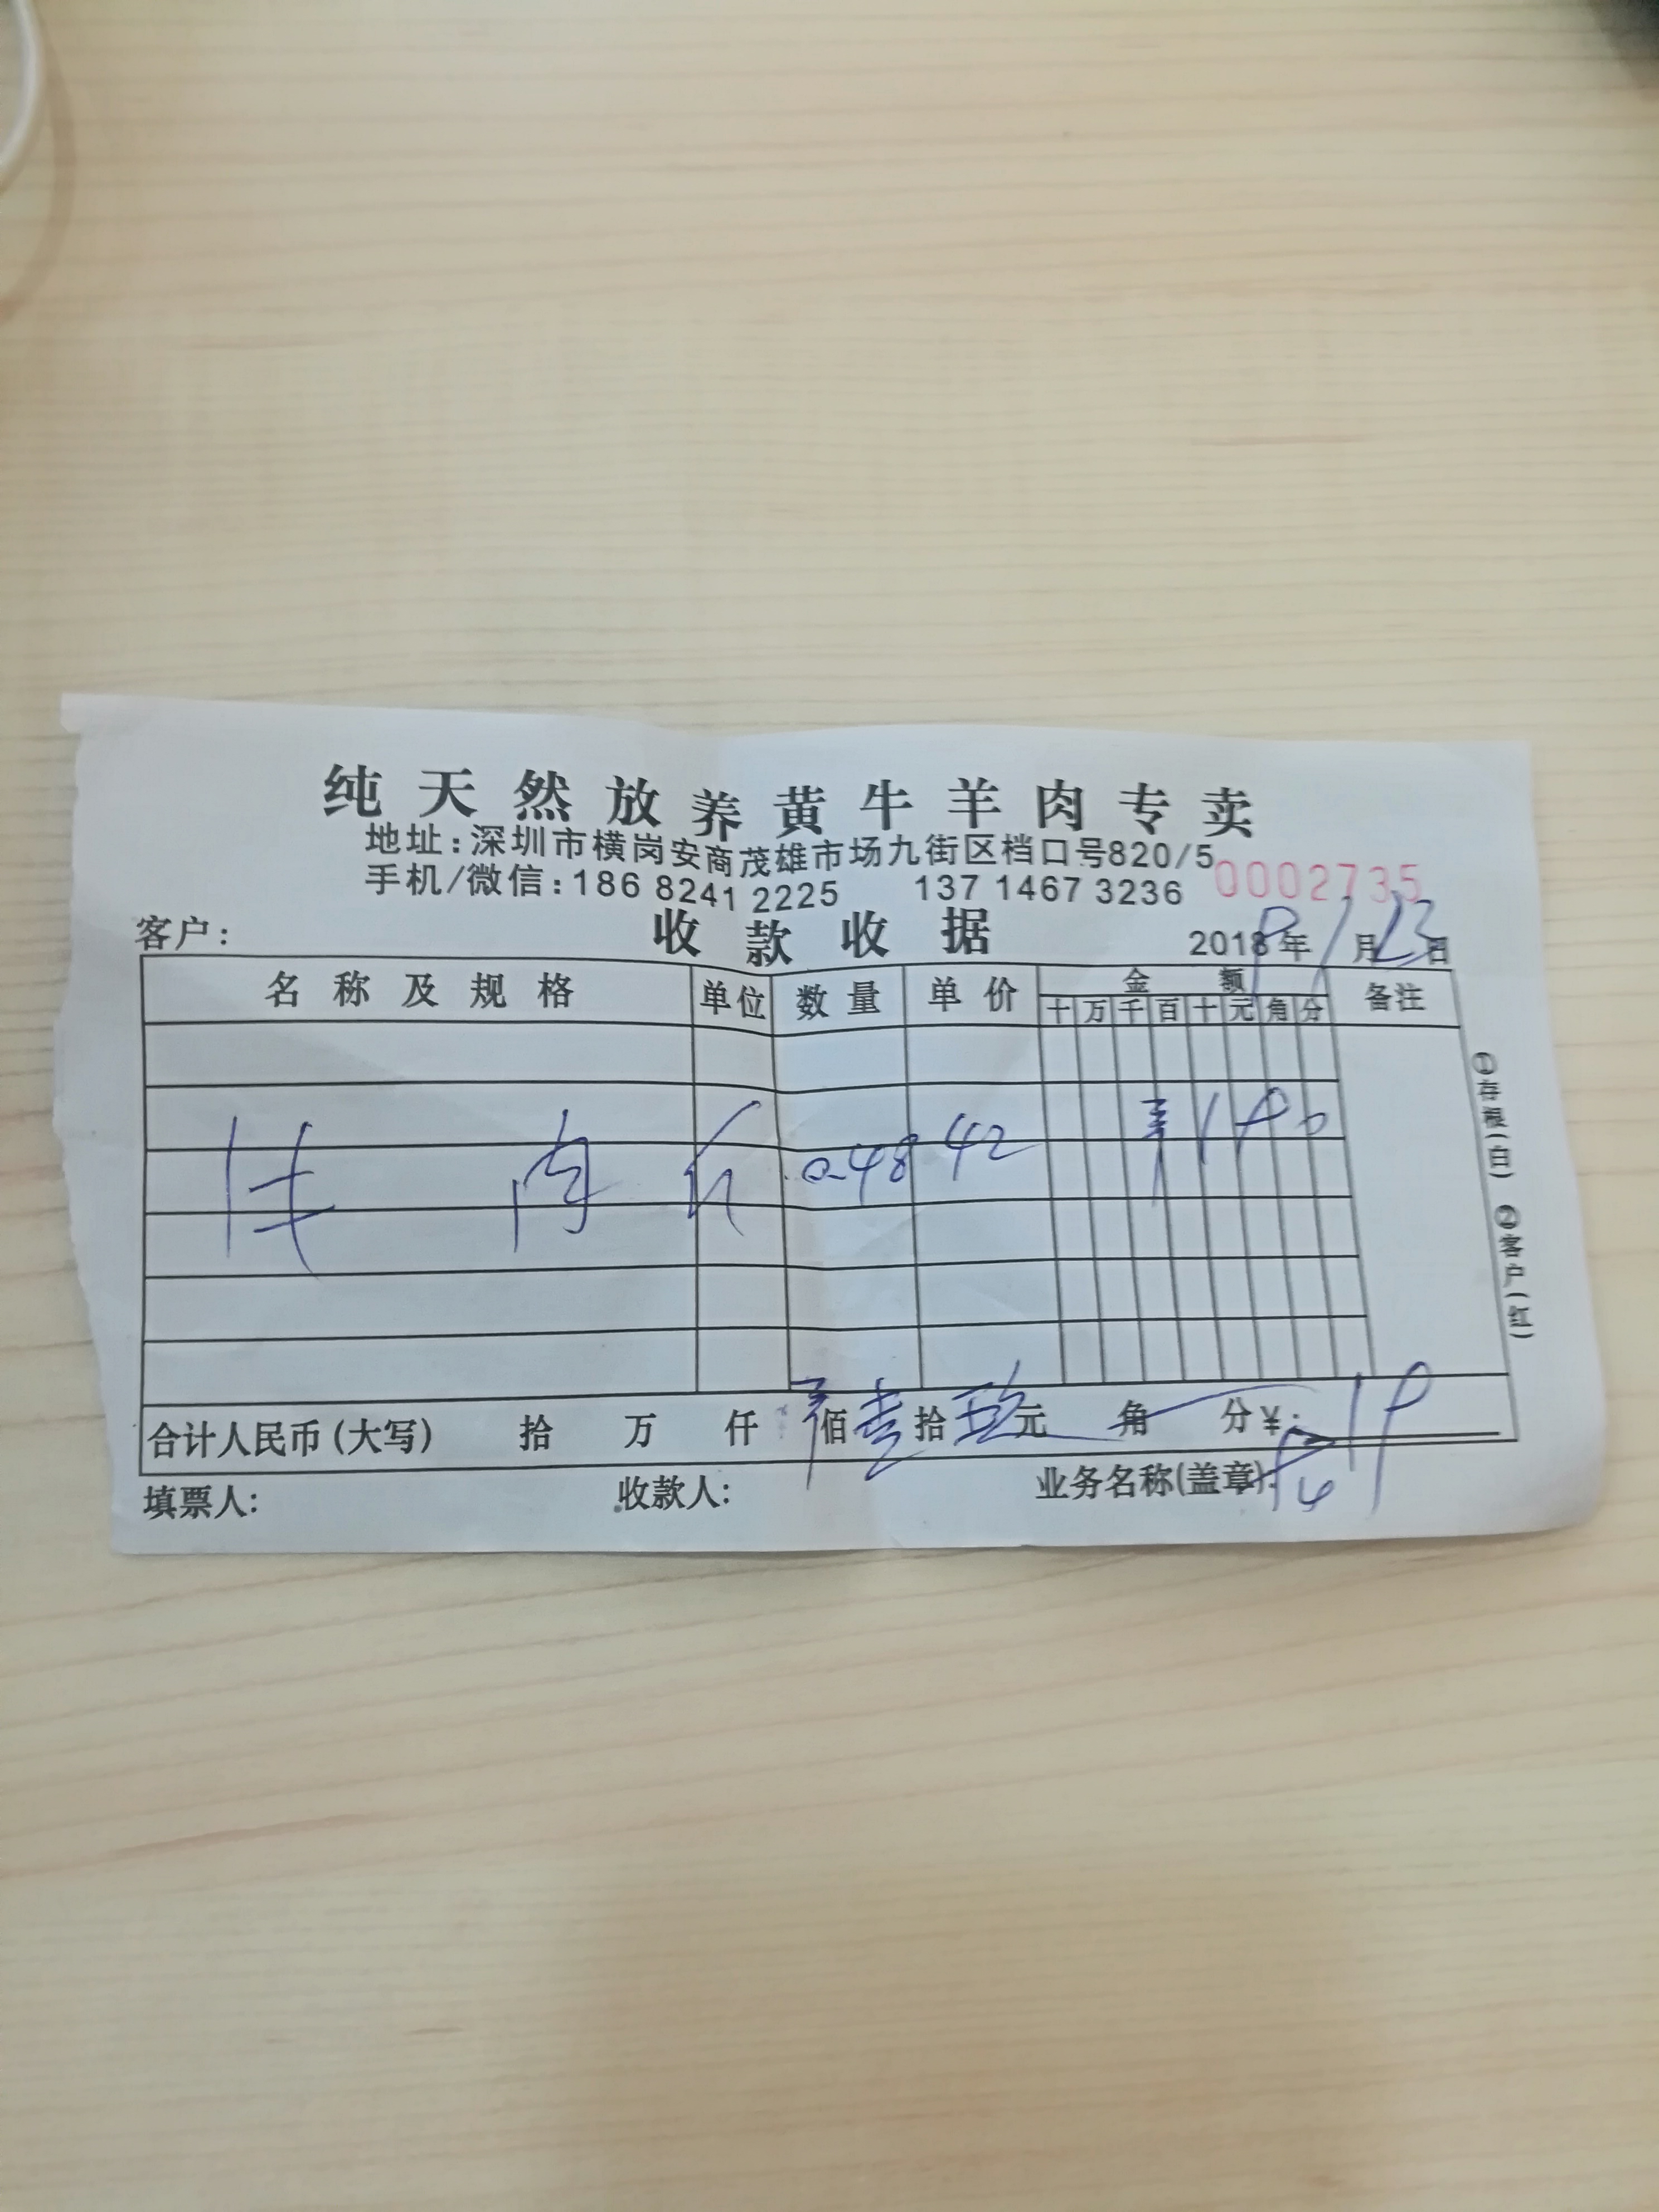 纯天然放养黄牛羊肉专卖
地址:深圳市横岗安商茂雄市场九街区档口号820/5
手机/微信:186 8241 2225 137 1467 3236 0002735
客户: 收款收据 2018年1月23日
名称及规格 单位 数量 单价 金额 备注
十 万 千 百 十 元 角 分
肉 斤 0.48 42
合计人民币(大写) 拾 万 仟 佰 壹 拾 元 角 分 ¥:
填票人: 收款人: 业务名称(盖章):
①存根(白) ②客户(红)